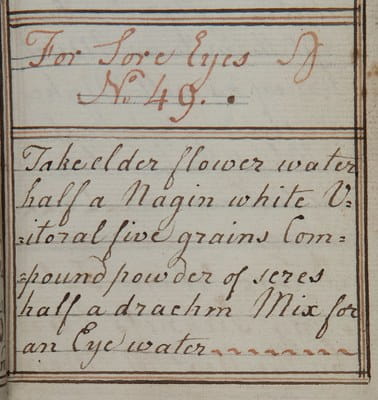 For Sore Eyes
No 49.
Take elder flower water
half a Nagin white V=
=itoral five grains Com=
=pound powder of seres
half a drachm Mix for
an Eye water